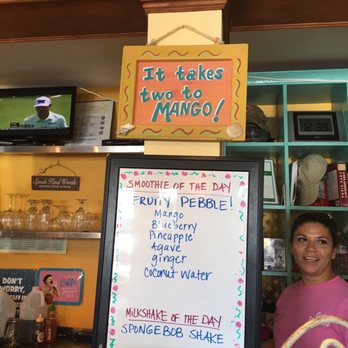 It takes
two to
MANGO!
SMOOTHIE OF THE DAY
FRUITY PEBBLE!
Mango
Blueberry
Pineapple
Agave
ginger
Coconut Water
MILKSHAKE OF THE DAY
SPONGEBOB SHAKE
DON'T
WORRY,